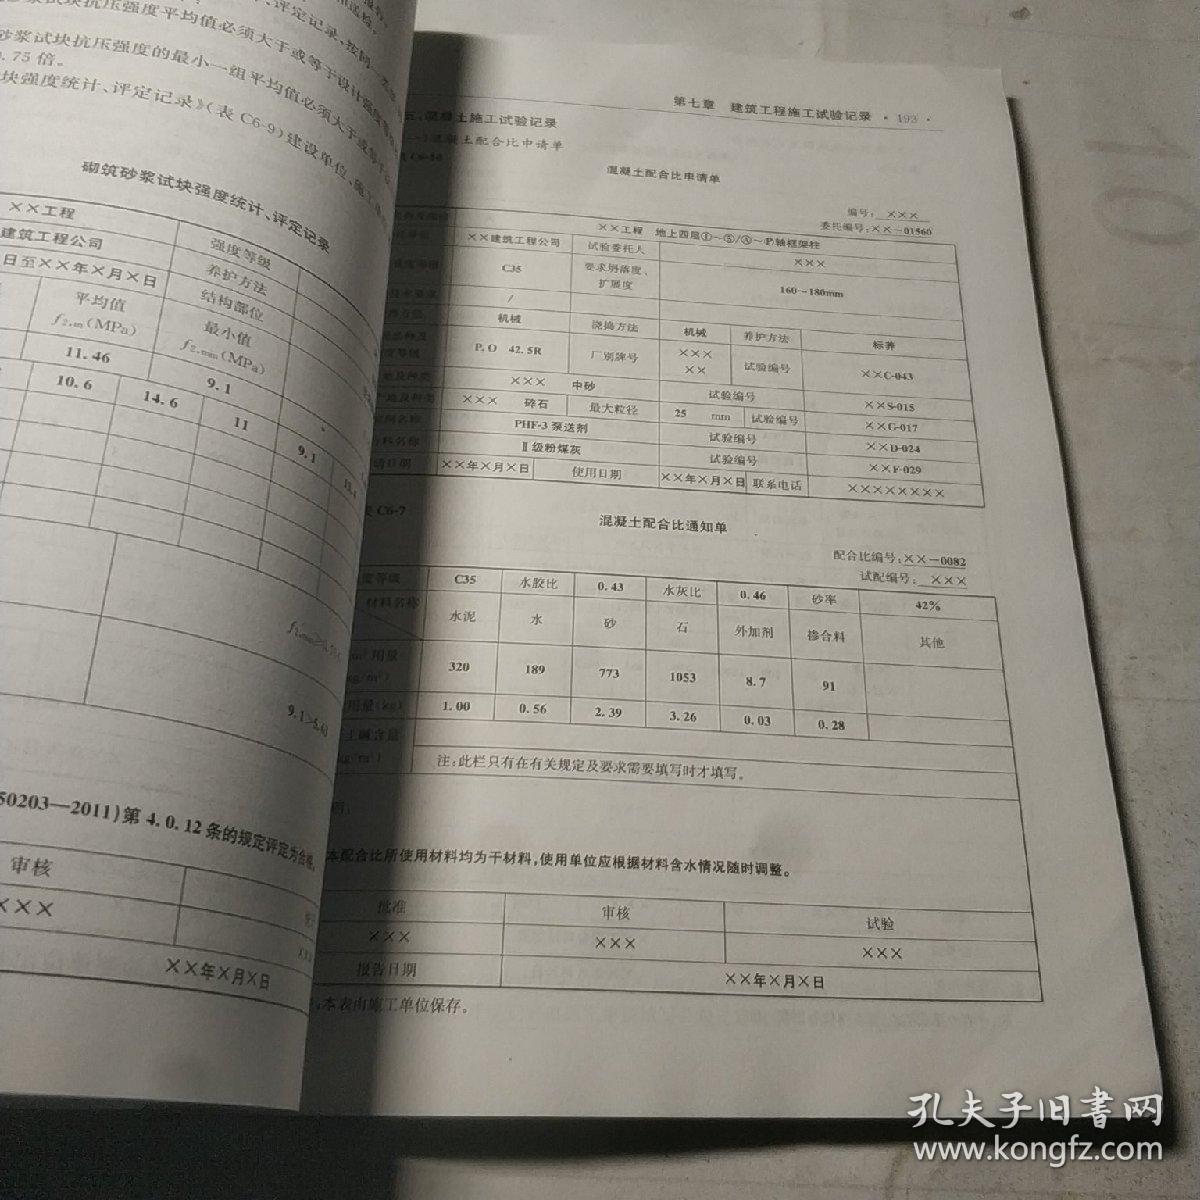 评定记录,按同一类
砂浆试块抗压强度平均值必须大于或等于设计强度等
砂浆试块抗压强度的最小一组平均值必须大于或等于
0.75倍。
块强度统计、评定记录》(表C6-9)建设单位、施工单
砌筑砂浆试块强度统计、评定记录
××工程 强度等级
建筑工程公司 养护方法
日至××年×月×日 结构部位
平均值 最小值
f2,m(MPa) f2,min(MPa)
11.46 9.1
10.6 14.6 11 9.1
9.1>5.63
50203—2011)第4.0.12条的规定评定为合格。
审核
×××
××年×月×日
第七章 建筑工程施工试验记录 ·193·
三、混凝土施工试验记录
(一)混凝土配合比申请单
表C6-10
混凝土配合比申请单
编号: ×××
委托编号:××-01560
××工程 地上四层①~⑤/Ⓐ~Ⓕ轴框架柱
××建筑工程公司 试验委托人 ×××
C35 要求坍落度、扩展度 160~180mm
/
机械 浇捣方法 机械 养护方法 标养
P.O 42.5R 厂别牌号 ××× ×× 试验编号 ××C-043
××× 中砂 试验编号 ××S-015
××× 碎石 最大粒径 25 mm 试验编号 ××G-017
PHF-3泵送剂 试验编号 ××D-024
Ⅱ级粉煤灰 试验编号 ××F-029
××年×月×日 使用日期 ××年×月×日 联系电话 ××××××××
表C6-7
混凝土配合比通知单
配合比编号:××-0082
试配编号: ×××
度等级 C35 水胶比 0.43 水灰比 0.46 砂率 42%
材料名称 水泥 水 砂 石 外加剂 掺合料 其他
用量 320 189 773 1053 8.7 91
用量(kg) 1.00 0.56 2.39 3.26 0.03 0.28
土碱含量
注:此栏只有在有关规定及要求需要填写时才填写。
本配合比所使用材料均为干材料,使用单位应根据材料含水情况随时调整。
批准 审核 试验
××× ××× ×××
报告日期 ××年×月×日
本表由施工单位保存。
孔夫子旧书网
www.kongfz.com